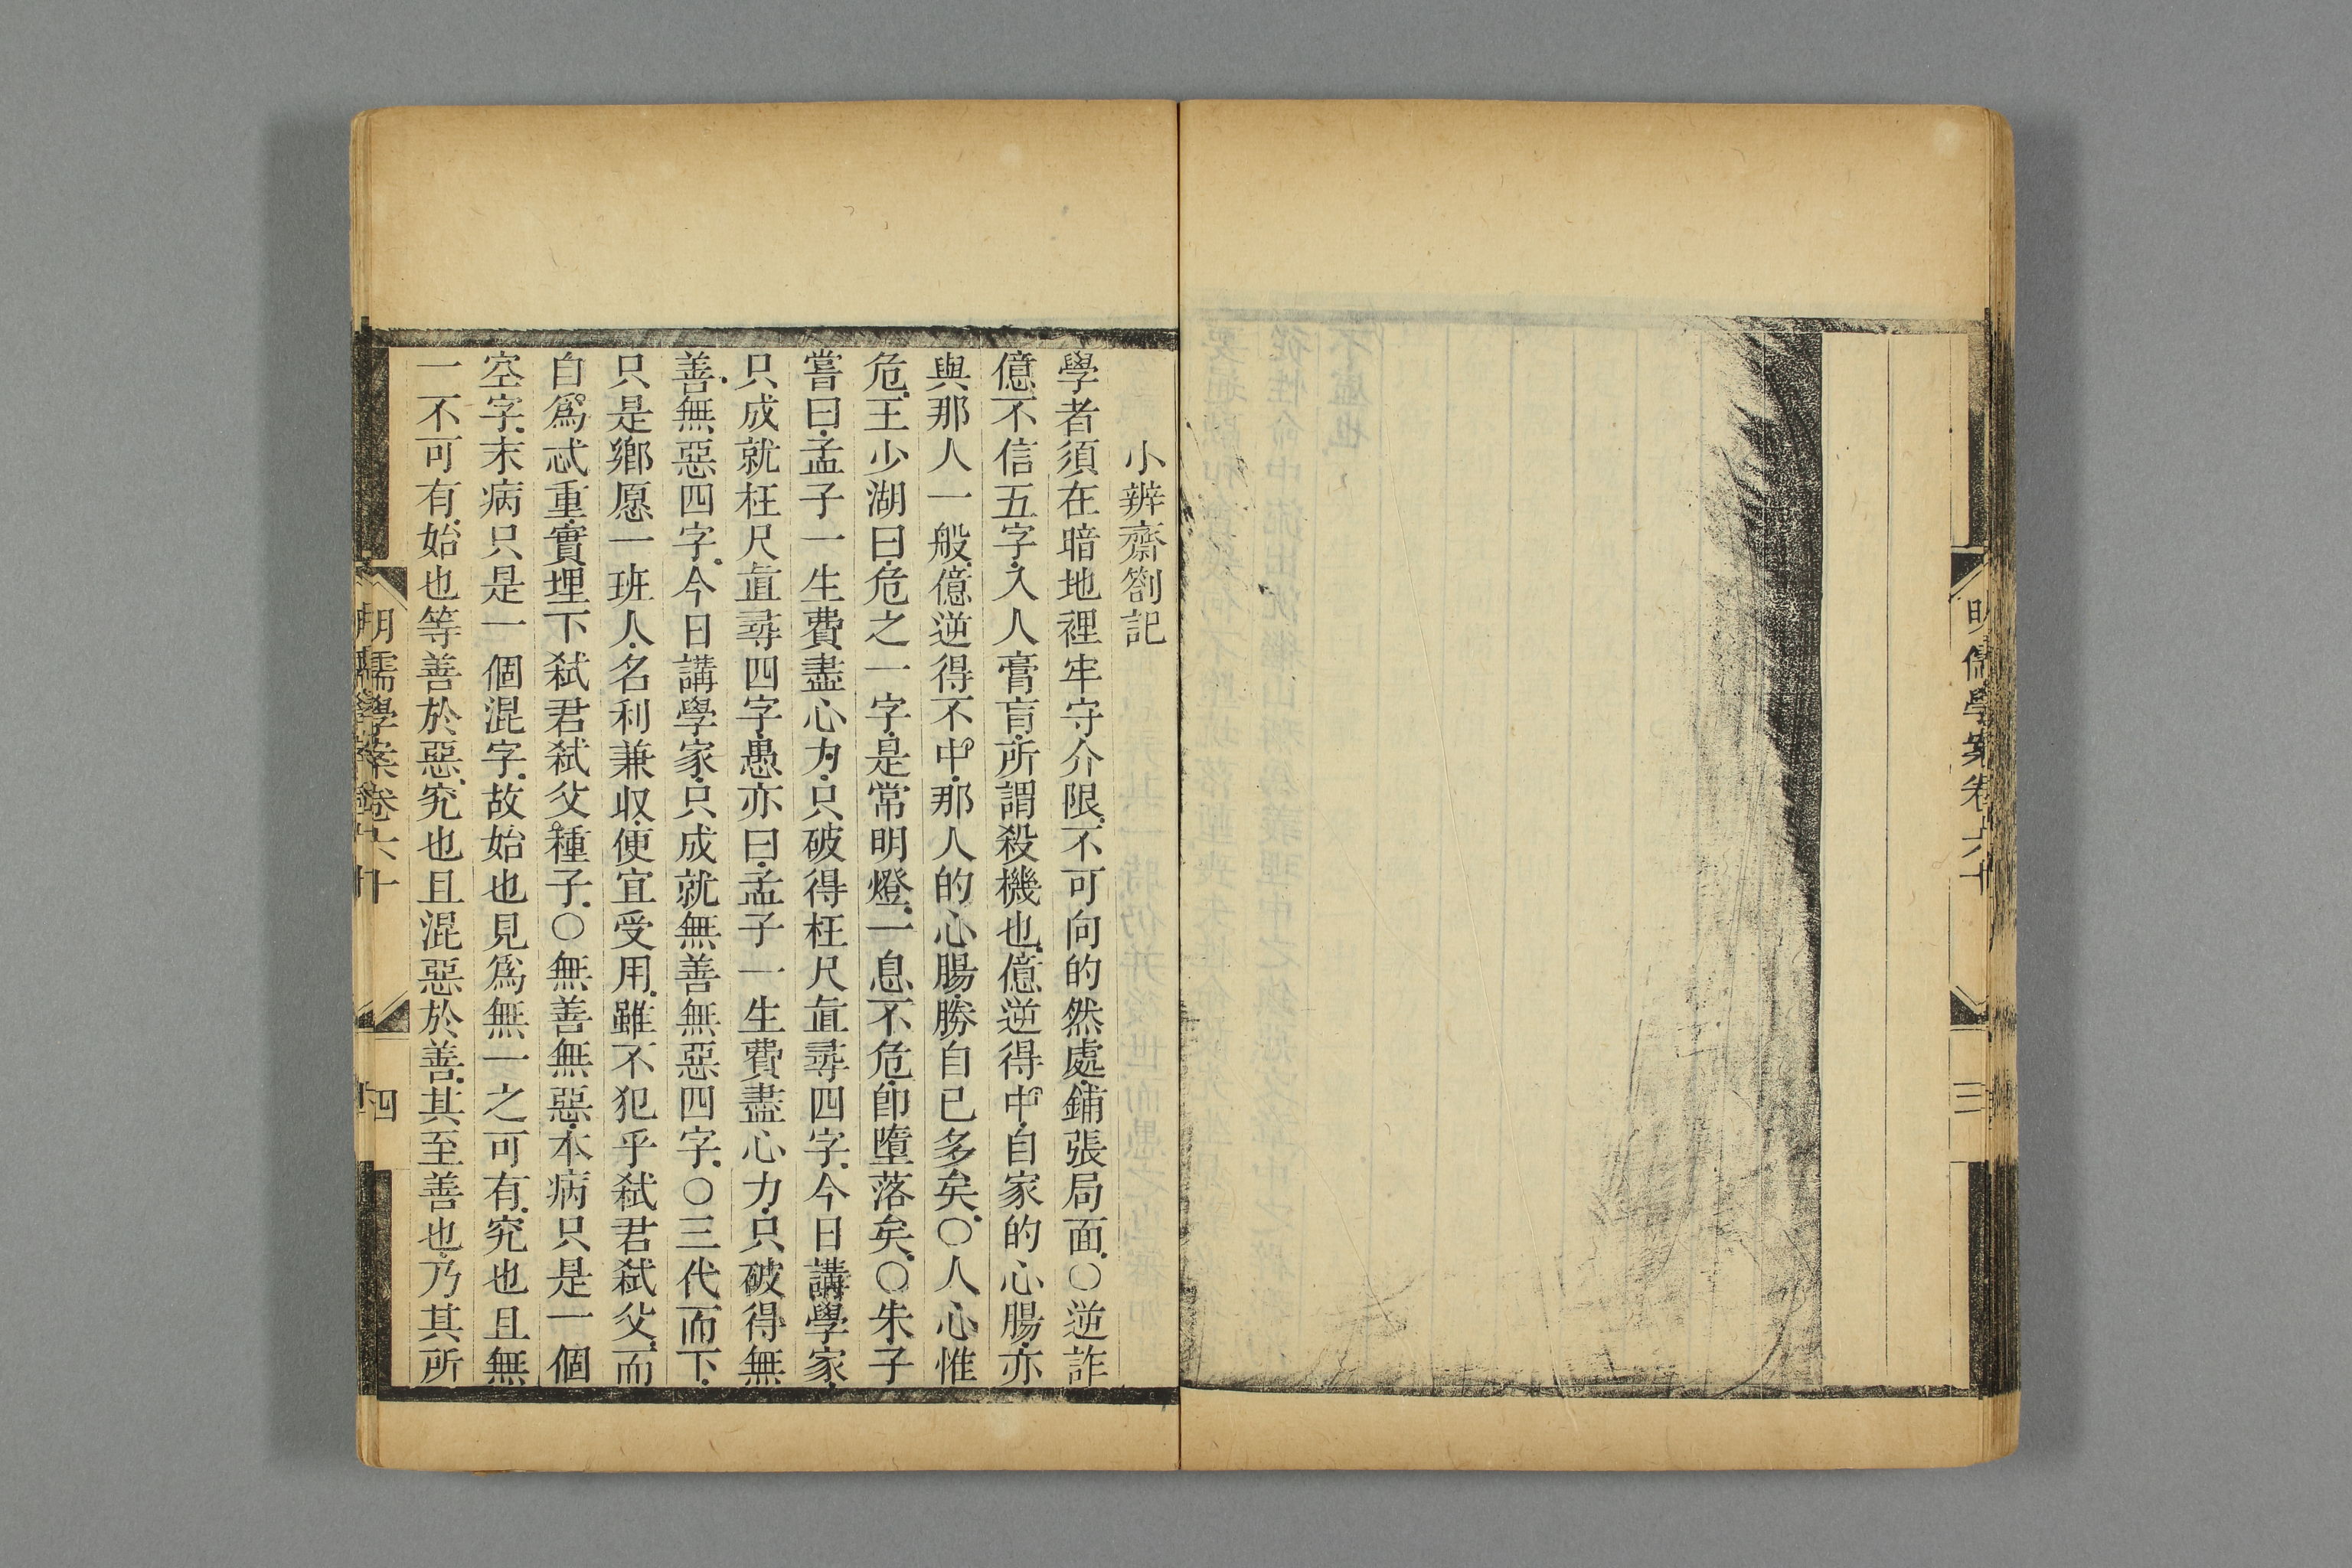 明儒學案卷六十
三
小辨齋劄記
學者須在暗地裡牢守介限不可向的然處鋪張局面○逆詐
億不信五字入人膏肓所謂殺機也億逆得中自家的心腸亦
與那人一般億逆得不中那人的心腸勝自己多矣○人心惟
危王少湖曰危之一字是常明燈一息不危卽墮落矣○朱子
嘗曰孟子一生費盡心力只破得枉尺直尋四字今日講學家
只成就枉尺直尋四字愚亦曰孟子一生費盡心力只破得無
善無惡四字今日講學家只成就無善無惡四字○三代而下
只是鄉愿一班人名利兼收便宜受用雖不犯乎弑君弑父而
自爲忒重實埋下弑君弑父種子○無善無惡本病只是一個
空字末病只是一個混字故始也見爲無一之可有究也且無
一不可有始也等善於惡究也且混惡於善其至善也乃其所
明儒學案卷六十
四